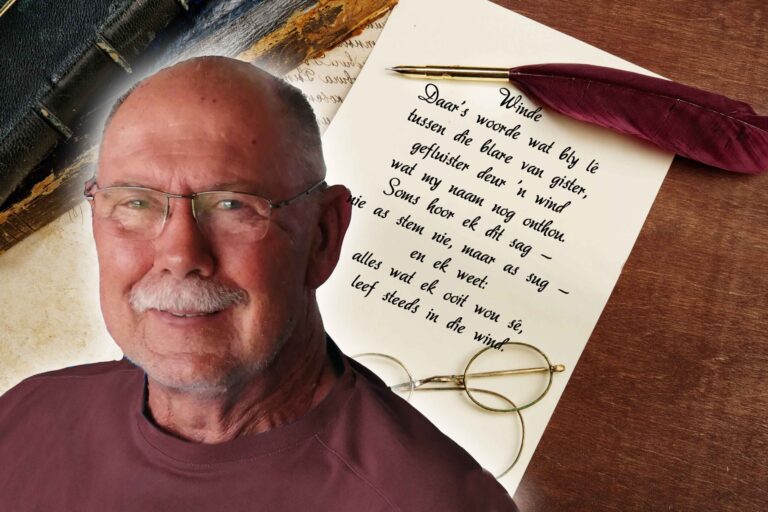 Winde
Daar's woorde wat bly lê
tussen die blare van gister,
gefluister deur 'n wind
wat my naam nog onthou.
Soms hoor ek dit sag –
nie as stem nie, maar as sug –
en ek weet:
alles wat ek ooit wou sê,
leef steeds in die wind.